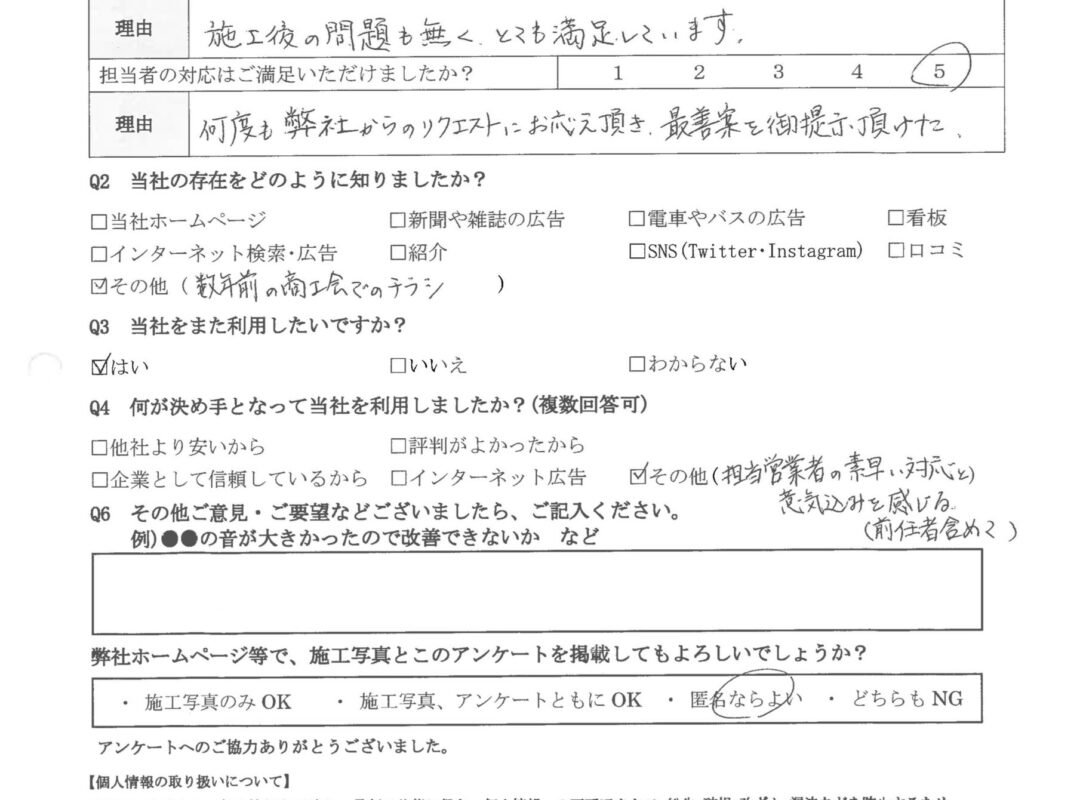 理由 施工後の問題も無く、とても満足しています。
担当者の対応はご満足いただけましたか？ 1 2 3 4 5
理由 何度も弊社からのリクエストにお応え頂き、最善案を御提示頂けた。
Q2 当社の存在をどのように知りましたか？
□当社ホームページ □新聞や雑誌の広告 □電車やバスの広告 □看板
□インターネット検索・広告 □紹介 □SNS(Twitter・Instagram) □口コミ
☑その他（数年前の商工会でのチラシ ）
Q3 当社をまた利用したいですか？
☑はい □いいえ □わからない
Q4 何が決め手となって当社を利用しましたか？(複数回答可)
□他社より安いから □評判がよかったから
□企業として信頼しているから □インターネット広告 ☑その他(担当営業者の素早い対応と)
意気込みを感じる。
(前任者含めて)
Q6 その他ご意見・ご要望などございましたら、ご記入ください。
例)●●の音が大きかったので改善できないか など
弊社ホームページ等で、施工写真とこのアンケートを掲載してもよろしいでしょうか？
・ 施工写真のみ OK ・ 施工写真、アンケートともに OK ・ 匿名ならよい ・ どちらも NG
アンケートへのご協力ありがとうございました。
【個人情報の取り扱いについて】